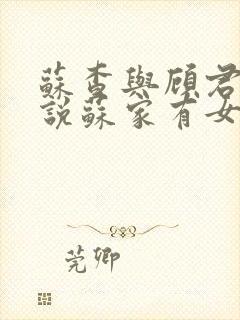 蘇杳與顧君
說蘇家有女
莞卿